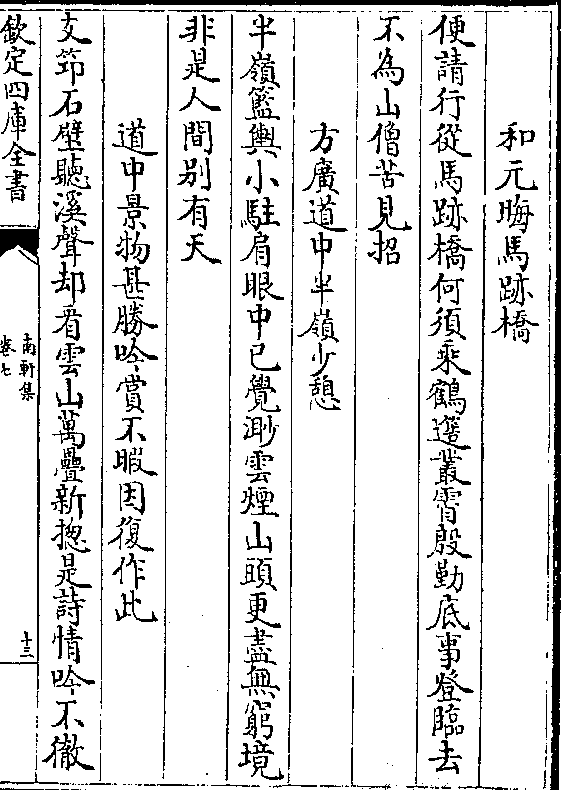 和元晦馬跡橋
便請行從馬跡橋何須乘鶴邀叢霄殷勤底事登臨去
不為山僧苦見招
方廣道中半嶺少憩
半嶺籃輿小駐肩眼中已覺渺雲煙山頭更盡無窮境
非是人間別有天
道中景物甚勝吟賞不暇因復作此
支笻石壁聽溪聲却看雲山萬疊新揔是詩情吟不徹
欽定四庫全書
南軒集
卷七
十三